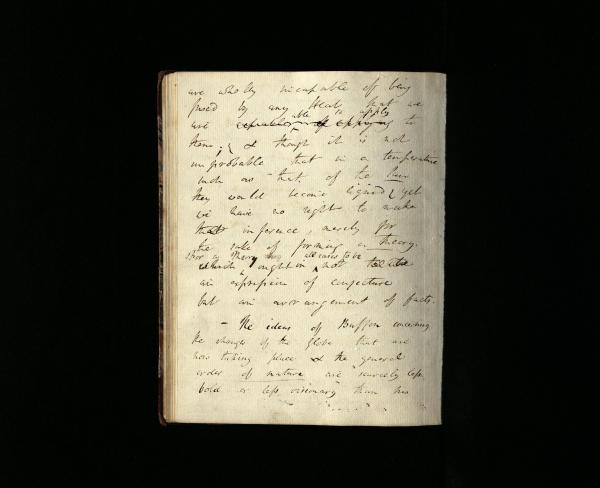 are wholly incapable of being
fused by any Heat that we
are able to apply to
them; & though it is not
improbable that in a temperature
such as that of the Sun
they would become liquid, yet
we have no right to make
that inference, merely for
the sake of forming a theory.
For a Theory
ought in not
an expression of conjecture
but an arrangement of facts.
- The ideas of Buffon concerning
the changes of the globe that are
now taking place & the general
order of nature are scarcely less
bold or less visionary than his